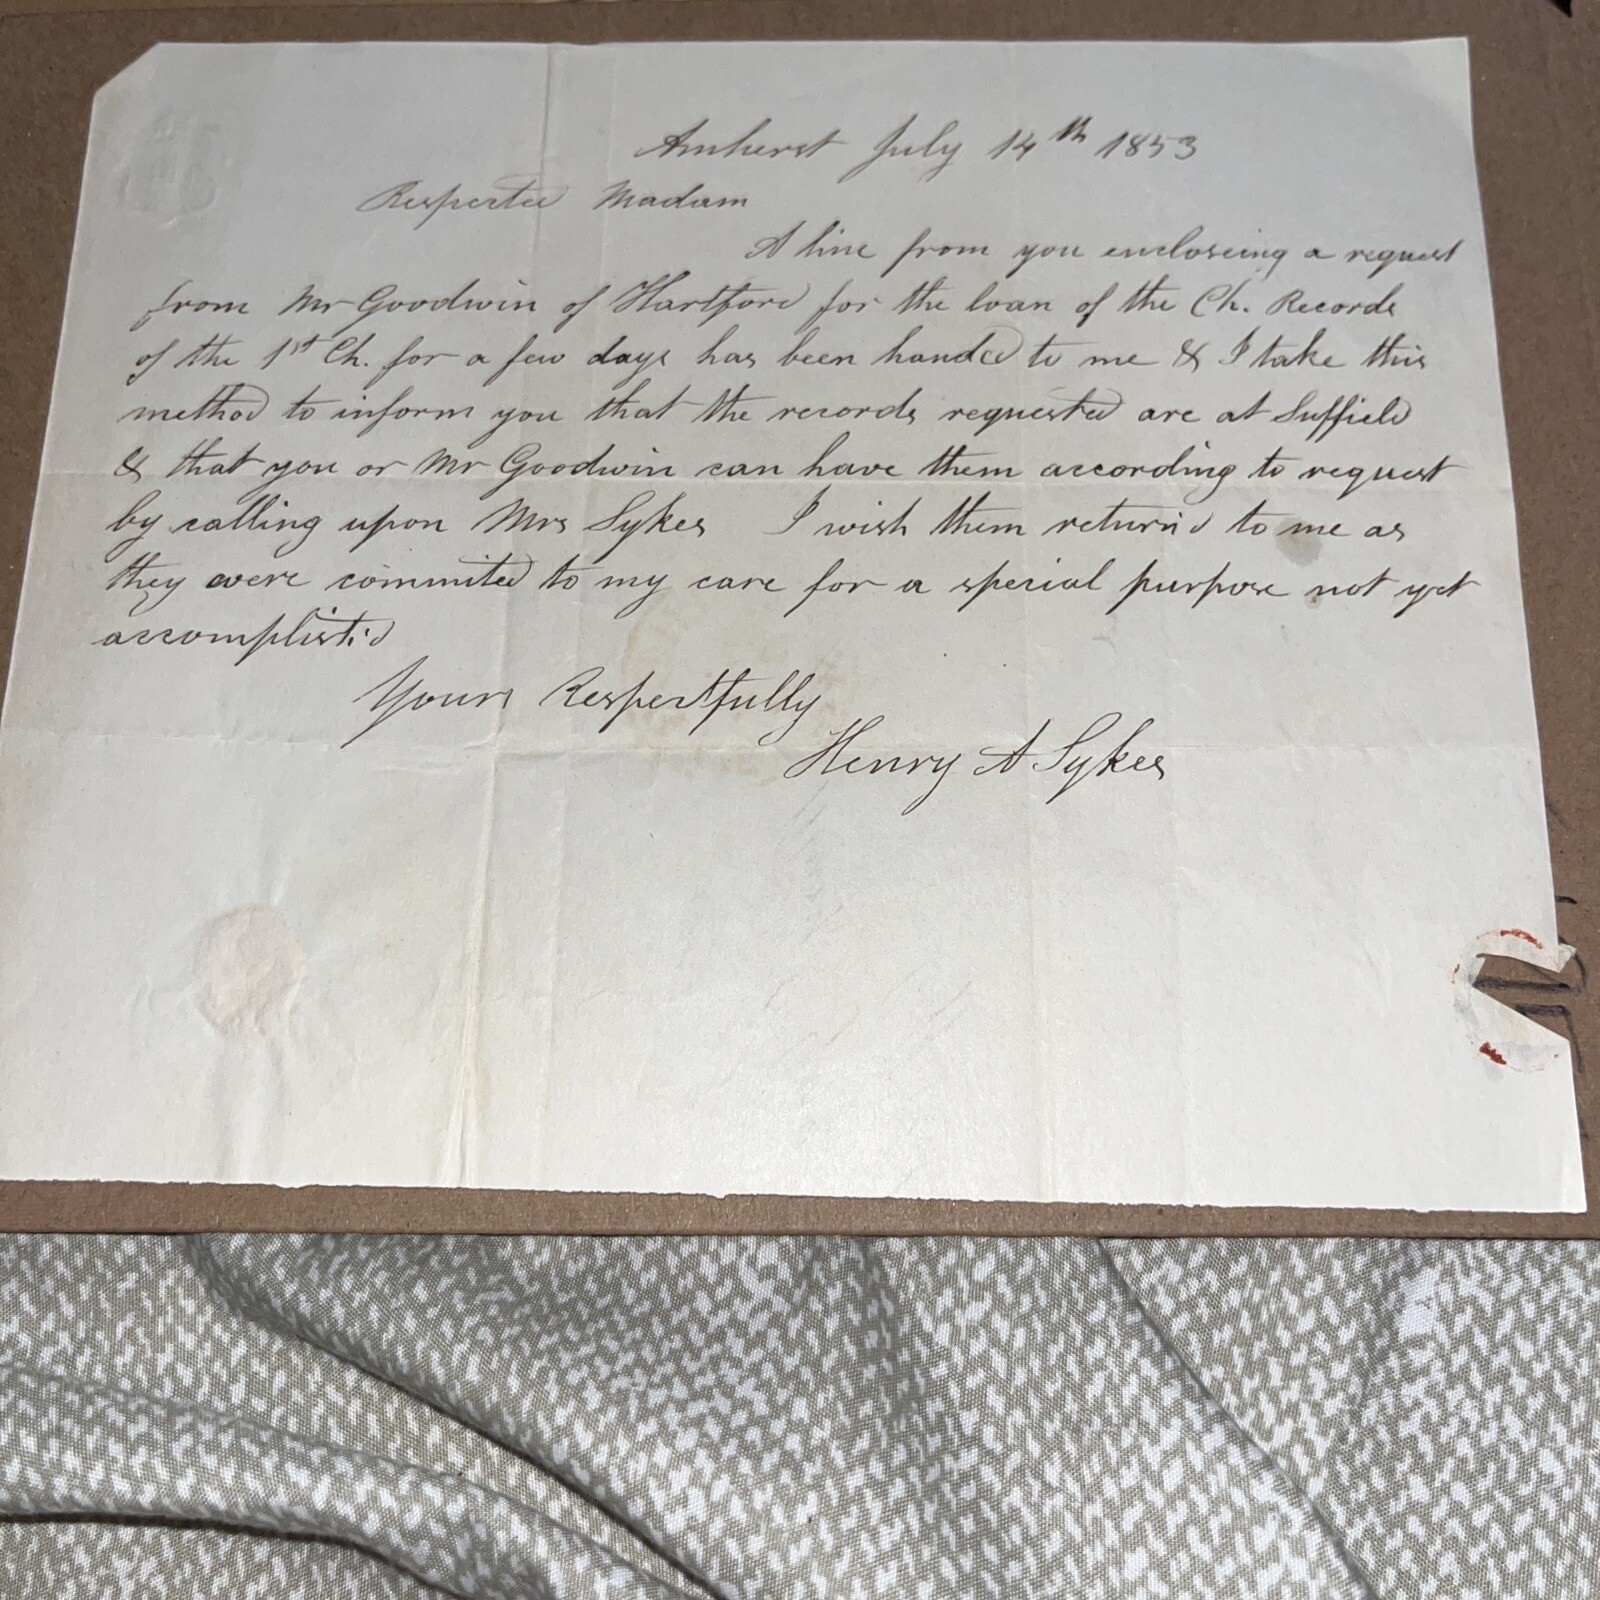 Amherst July 14th 1853
Respected Madam
A line from you encloseing a request
from Mr Goodwin of Hartford for the loan of the Ch. Records
of the 1st Ch. for a few days has been handed to me & I take this
method to inform you that the records requested are at Suffield
& that you or Mr Goodwin can have them according to request
by calling upon Mrs Sykes I wish them return'd to me as
they were commited to my care for a special purpose not yet
accomplish'd
Yours Respectfully
Henry A Sykes